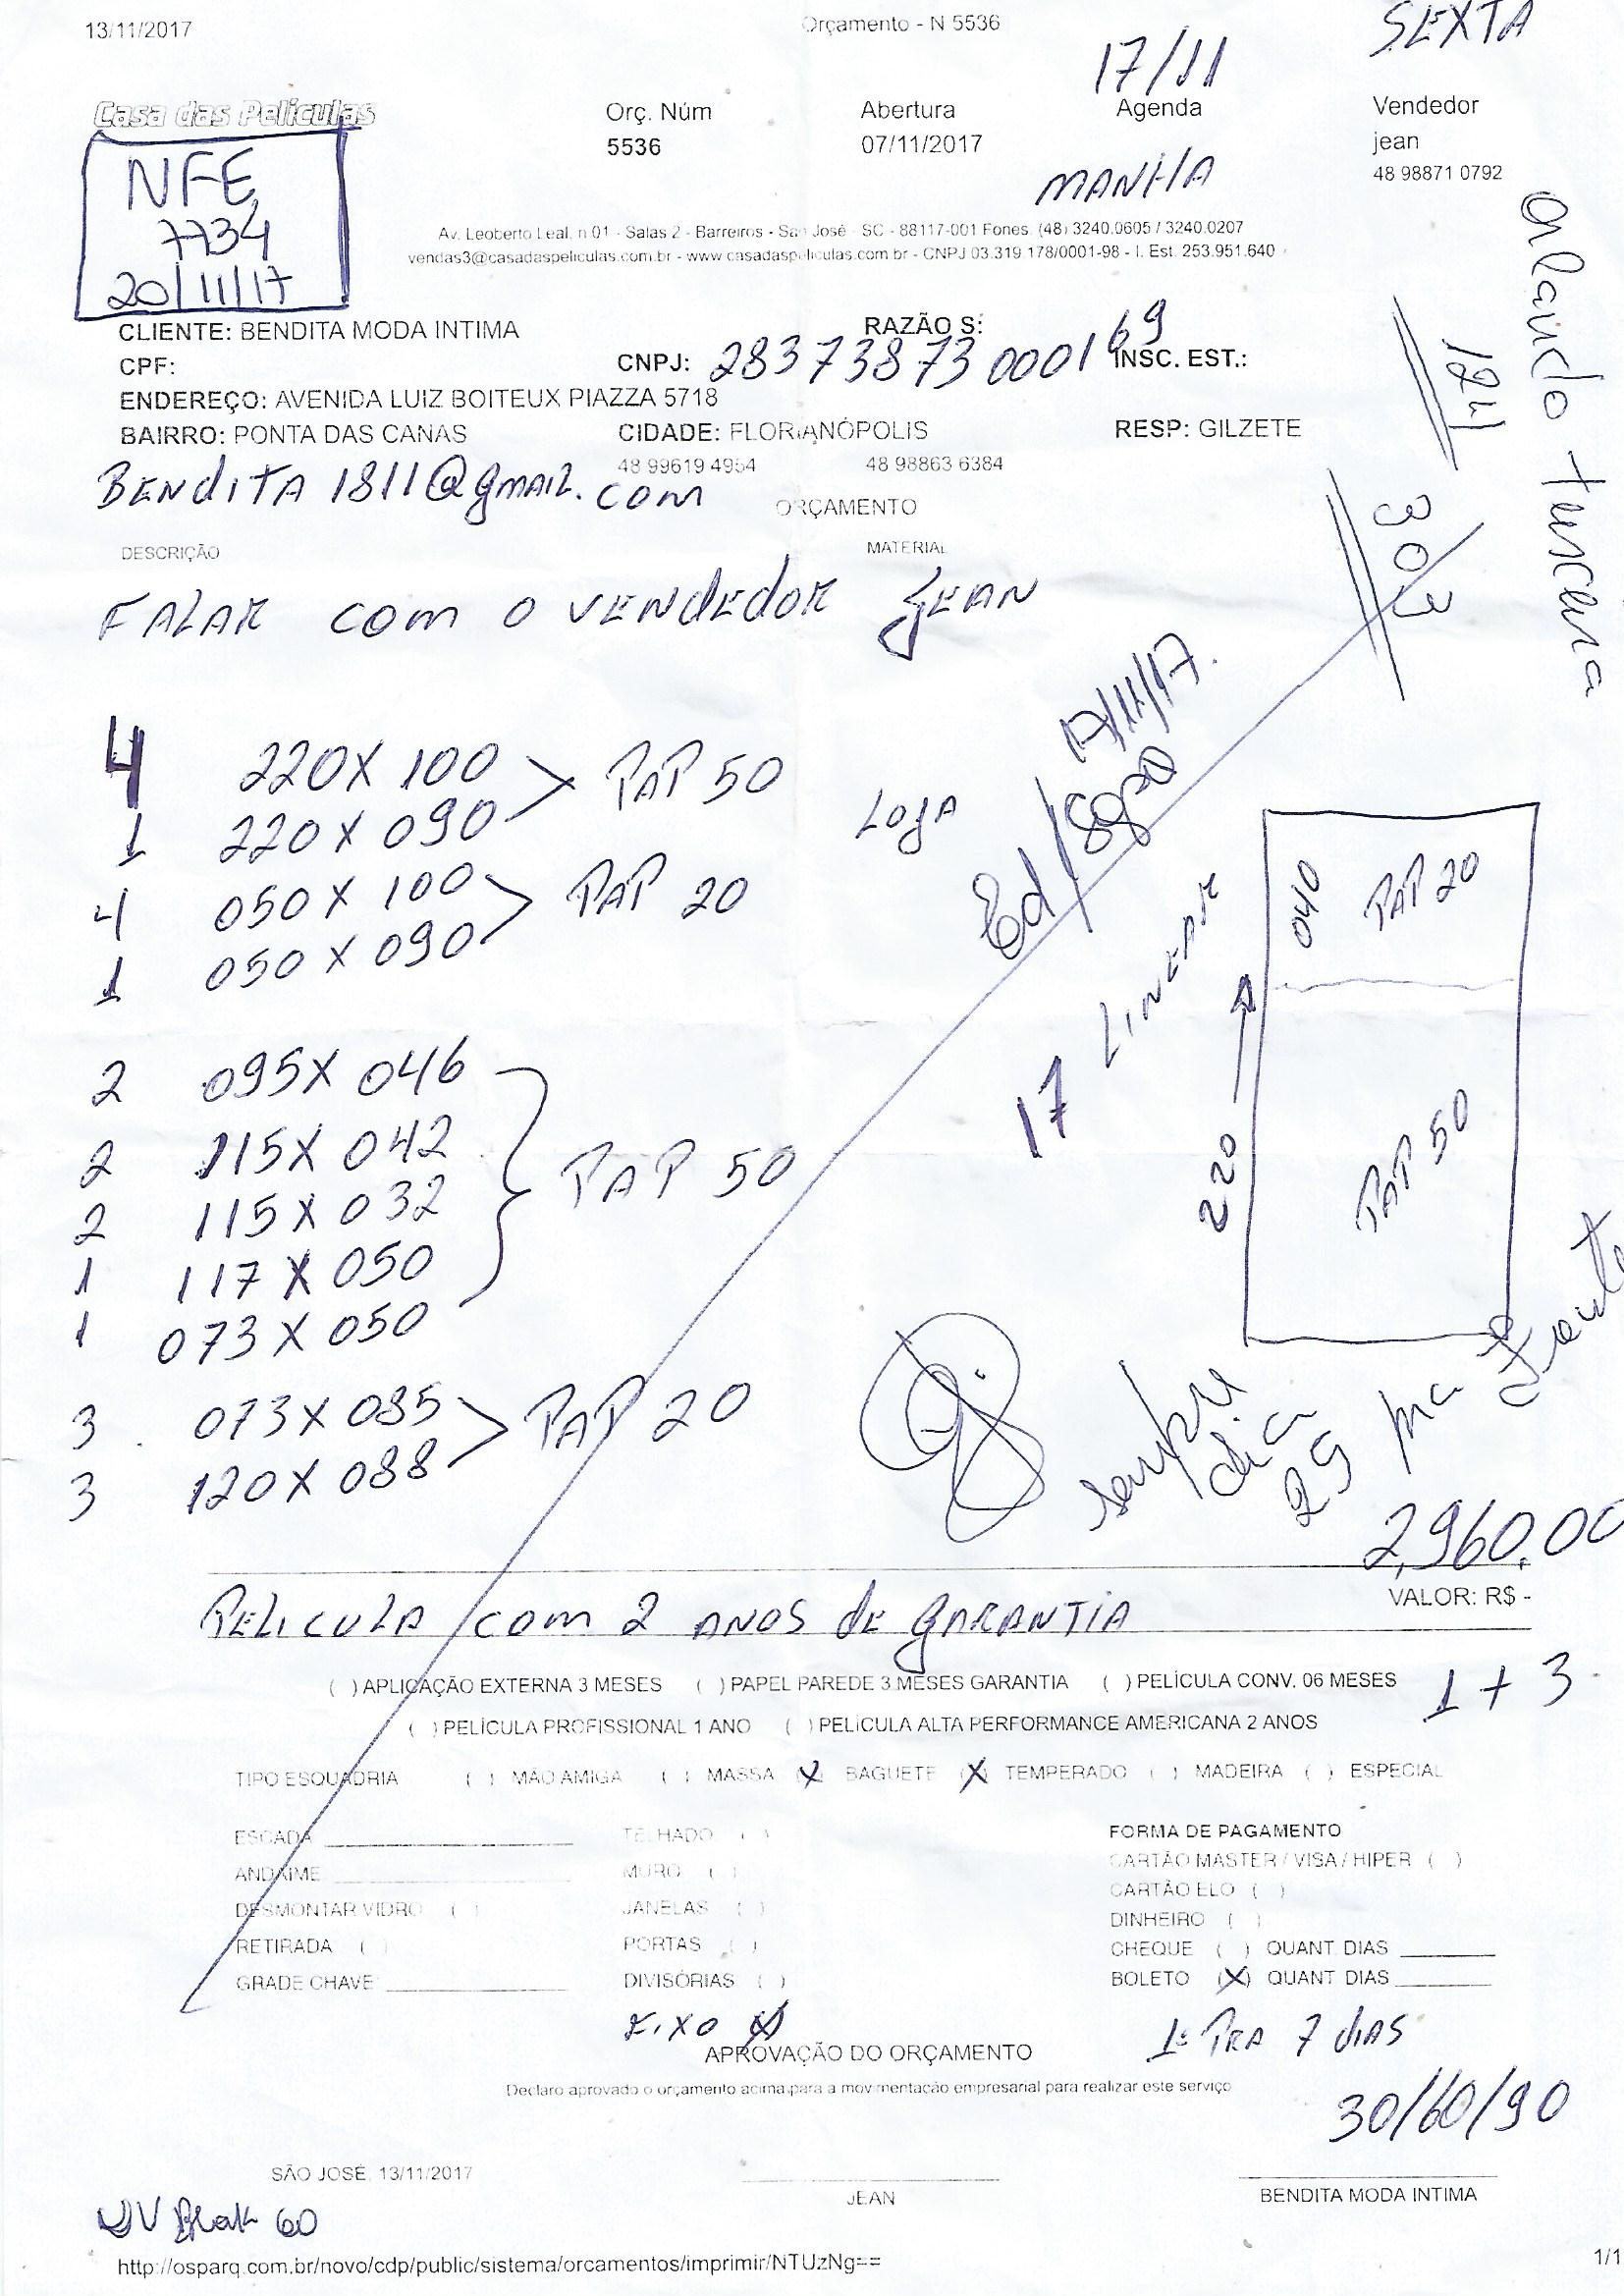 13/11/2017
Orçamento - N 5536
SEXTA
17/11
Casa das Películas
Orç. Núm
Abertura
Agenda
Vendedor
5536
07/11/2017
jean
MANHA
48 98871 0792
NFE
7734
20/11/17
Av. Leoberto Leal, n 01 - Salas 2 - Barreiros - San José - SC - 88117-001 Fones. (48) 3240.0605 / 3240.0207
vendas3@casadaspeliculas.com.br - www.casadaspeliculas.com.br - CNPJ 03.319.178/0001-98 - I. Est. 253.951.640
CLIENTE: BENDITA MODA INTIMA
RAZÃO S:
CPF:
CNPJ: 28373873 0001 69
INSC. EST.:
ENDEREÇO: AVENIDA LUIZ BOITEUX PIAZZA 5718
BAIRRO: PONTA DAS CANAS
CIDADE: FLORIANÓPOLIS
RESP: GILZETE
48 99619 4954
48 98863 6384
BENDITA 1811@gmail.com
124
303
ORÇAMENTO
DESCRIÇÃO
MATERIAL
FALAR COM O VENDEDOR JEAN
17/11/17.
4 220X100
1 220X090
PAP 50
LOJA
4 050X100
1 050X090
PAP 20
17 LINEAR
040
PAP 20
220
PAP 50
2 095X046
2 115X042
2 115X032
1 117X050
1 073X050
PAP 50
3 073X085
3 120X088
PAP 20
sempre
dia
29
2,960.00
VALOR: R$ -
PELICULA COM 2 ANOS DE GARANTIA
( ) APLICAÇÃO EXTERNA 3 MESES ( ) PAPEL PAREDE 3 MESES GARANTIA ( ) PELÍCULA CONV. 06 MESES
1 + 3
( ) PELÍCULA PROFISSIONAL 1 ANO ( ) PELÍCULA ALTA PERFORMANCE AMERICANA 2 ANOS
TIPO ESQUADRIA ( ) MÃO AMIGA ( ) MASSA (X) BAGUETE (X) TEMPERADO ( ) MADEIRA ( ) ESPECIAL
ESCADA
TELHADO ( )
FORMA DE PAGAMENTO
ANDAIME
MURO ( )
CARTÃO MASTER / VISA / HIPER ( )
DESMONTAR VIDRO ( )
JANELAS ( )
CARTÃO ELO ( )
DINHEIRO ( )
RETIRADA ( )
PORTAS ( )
CHEQUE ( ) QUANT. DIAS
GRADE CHAVE
DIVISÓRIAS ( )
BOLETO (X) QUANT DIAS
FIXO (X)
1º PRA 7 DIAS
APROVAÇÃO DO ORÇAMENTO
Declaro aprovado o orçamento acima para a movimentação empresarial para realizar este serviço
30/60/90
SÃO JOSÉ, 13/11/2017
JEAN
BENDITA MODA INTIMA
http://osparq.com.br/novo/cdp/public/sistema/orcamentos/imprimir/NTUzNg==
1/1